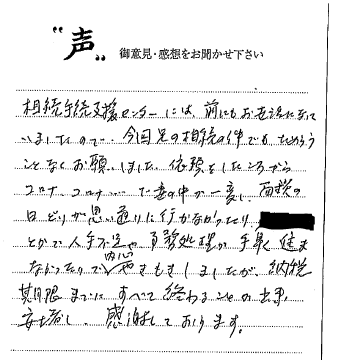 "声" 御意見・感想をお聞かせ下さい
相続手続支援センターには、前にもお世話になって
いましたので、今回兄の相続の件でもためらう
ことなくお願いしました。依頼をしたころから
コロナ、コロナ……で世の中が一変し、面談の
日どりが思い通りに行かなかったり
とかで人手不足や事務処理が手早く進ま
なかったりで内心やきもきしましたが、納税
期限までにすべて終わることが出来、
安堵し、感謝しております。